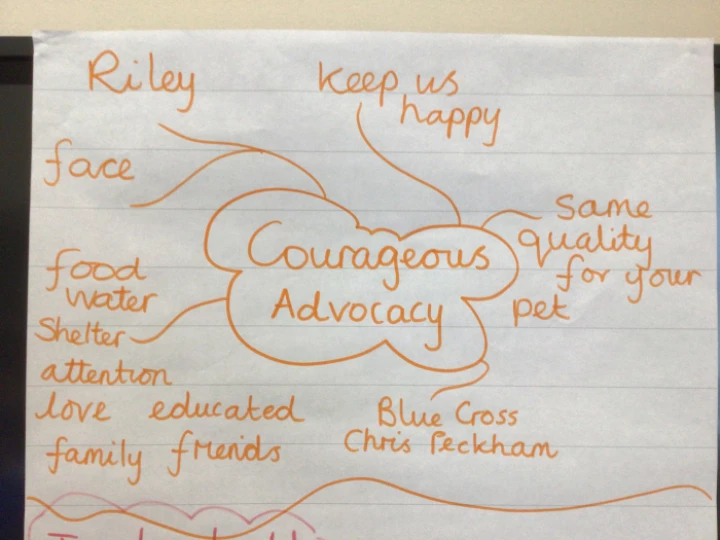 Riley
keep us
happy
face
Courageous
Advocacy
Same
quality
for your
pet
food
water
Shelter
attention
love educated
family friends
Blue Cross
Chris Peckham